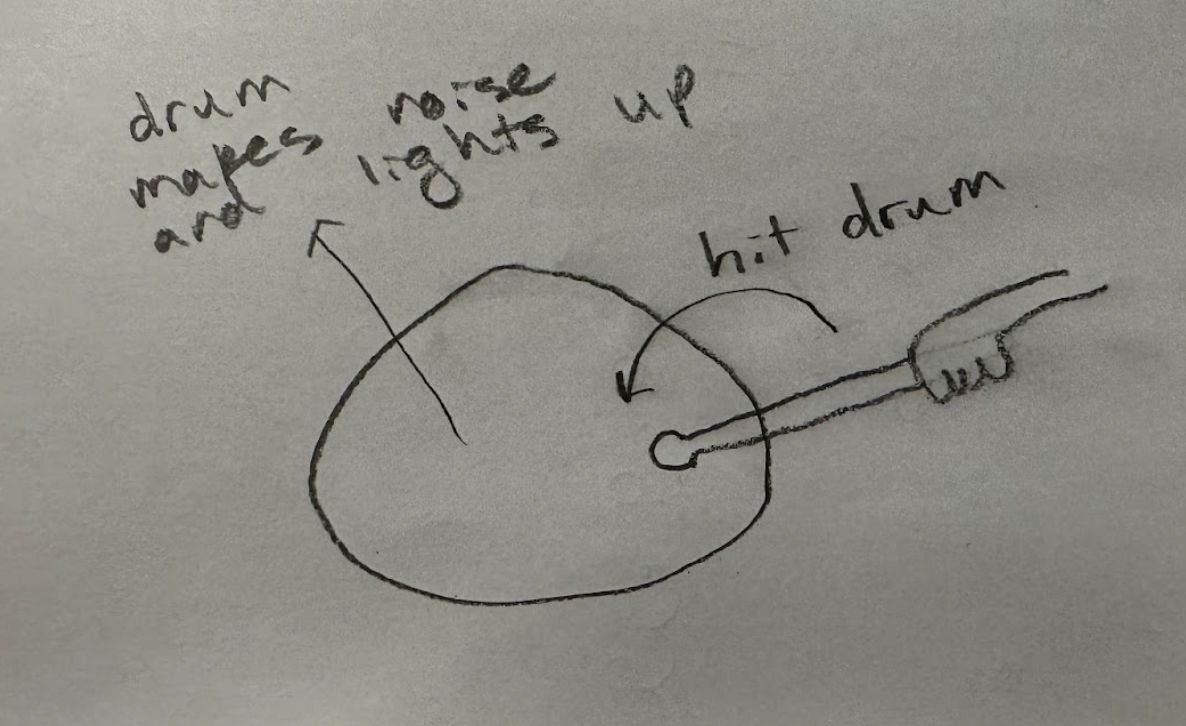 drum
makes noise
and lights up
hit drum